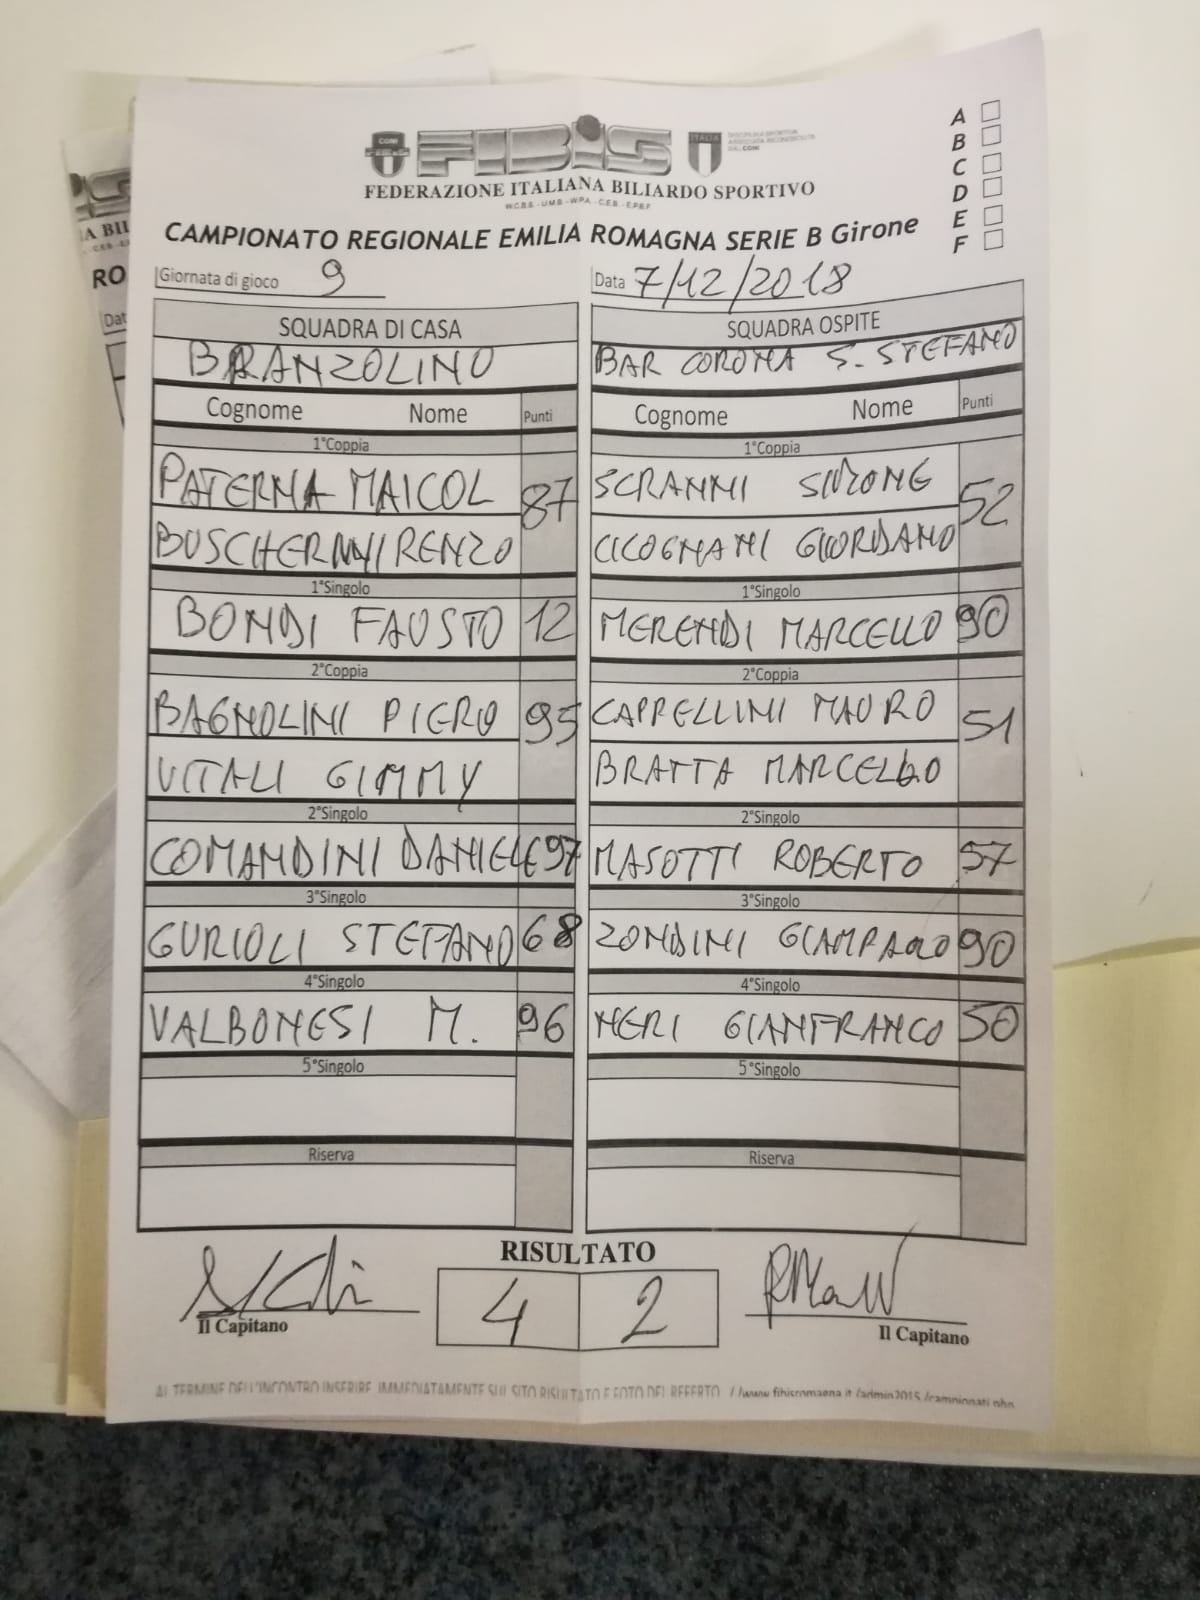 CONI
FIBiS
ITALIA
FEDERAZIONE ITALIANA BILIARDO SPORTIVO
W.C.B.S. - U.M.B. - W.P.A. - C.E.B. - E.P.B.F.
A
B
C
D
E
F
CAMPIONATO REGIONALE EMILIA ROMAGNA SERIE B Girone
Giornata di gioco 9
Data 7/12/2018
SQUADRA DI CASA
BRANZOLINO
Cognome Nome Punti
1°Coppia
PATERNA MAICOL 87
BUSCHERINI RENZO
1°Singolo
BONDI FAUSTO 12
2°Coppia
BAGNOLINI PIERO 95
VITALI GIMMY
2°Singolo
COMANDINI DANIELE 97
3°Singolo
GURIOLI STEFANO 68
4°Singolo
VALBONESI M. 96
5°Singolo
Riserva
SQUADRA OSPITE
BAR CORONA S. STEFANO
Cognome Nome Punti
1°Coppia
SCRANNI SIMONE 52
CICOGNANI GIORDANO
1°Singolo
MERENDI MARCELLO 90
2°Coppia
CAPPELLINI MAURO 51
BRATTA MARCELLO
2°Singolo
MASOTTI ROBERTO 57
3°Singolo
ZONDINI GIAMPAOLO 90
4°Singolo
NERI GIANFRANCO 50
5°Singolo
Riserva
RISULTATO
4 2
Il Capitano
Il Capitano
AL TERMINE DELL'INCONTRO INSERIRE IMMEDIATAMENTE SUL SITO RISULTATO E FOTO DEL REFERTO //www.fibisromagna.it/admin2015/campionati.php